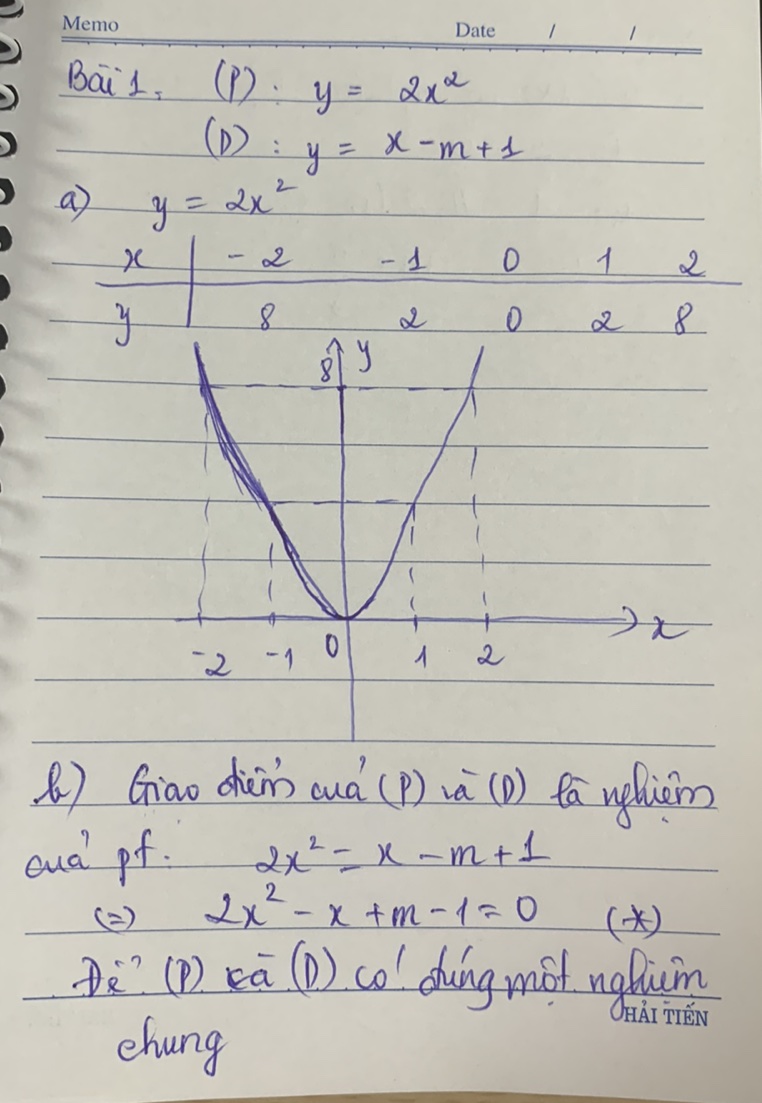 Memo Date / /
Bài 1. (P): y = 2x²
(D): y = x - m + 1
a) y = 2x²
x | -2 -1 0 1 2
y | 8 2 0 2 8
8 y
-2 -1 0 1 2 x
b) Giao điểm của (P) và (D) là nghiệm
của pt: 2x² = x - m + 1
(=) 2x² - x + m - 1 = 0 (*)
Để (P) và (D) có đúng một nghiệm
HẢI TIẾN
chung